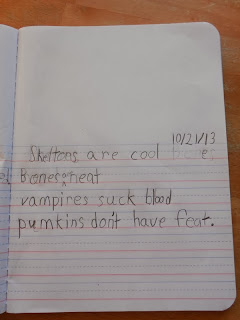 10/21/13
Skeltons are cool
Bones neat
vampires suck blood
pumkins don't have feat.